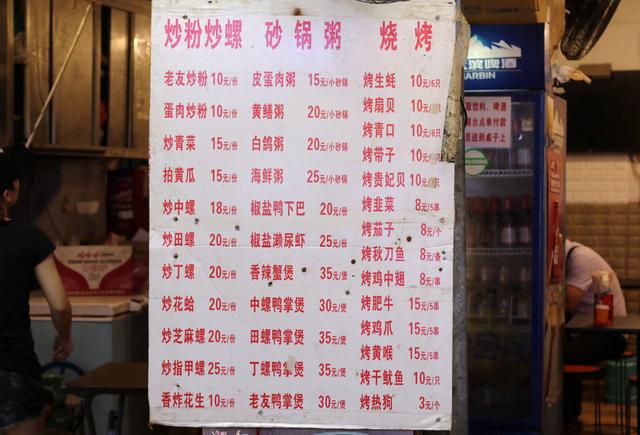 炒粉炒螺
老友炒粉 10元/份
蛋肉炒粉 10元/份
炒青菜 15元/份
拍黄瓜 15元/份
炒中螺 18元/份
炒田螺 20元/份
炒丁螺 20元/份
炒花蛤 20元/份
炒芝麻螺 20元/份
炒指甲螺 25元/份
香炸花生 10元/份
砂锅粥
皮蛋肉粥 15元/小砂锅
黄鳝粥 20元/小砂锅
白鸽粥 20元/小砂锅
海鲜粥 25元/小砂锅
椒盐鸭下巴 20元/份
椒盐濑尿虾 25元/份
香辣蟹煲 35元/煲
中螺鸭掌煲 30元/煲
田螺鸭掌煲 35元/煲
丁螺鸭掌煲 35元/煲
老友鸭掌煲 30元/煲
烧烤
烤生蚝 10元/6只
烤扇贝 10元
烤青口 10元/6只
烤带子 10元
烤贵妃贝 10元
烤韭菜 8元/5串
烤茄子 8元/个
烤秋刀鱼 8元/条
烤鸡中翅 8元/串
烤肥牛 15元/5串
烤鸡爪 15元/5串
烤黄喉 15元/5串
烤干鱿鱼 10元/只
烤热狗 3元/个
滨啤酒
HARBIN
饮料、啤酒
台点单付款
送到桌子上